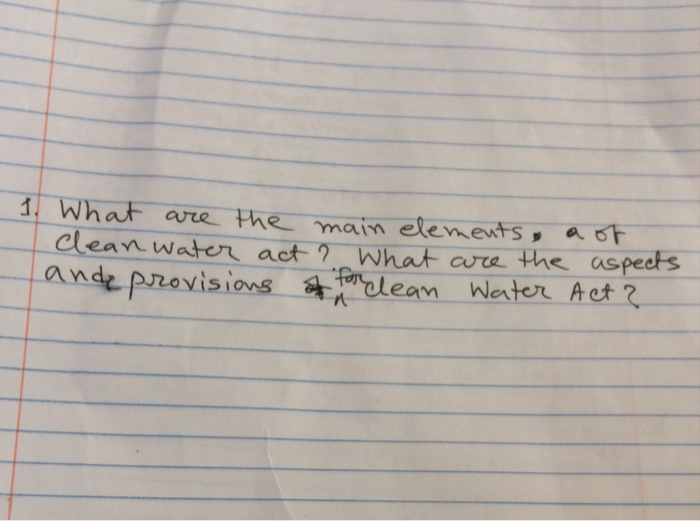 1. What are the main elements, a of
clean water act? What are the aspects
and provisions for clean Water Act?